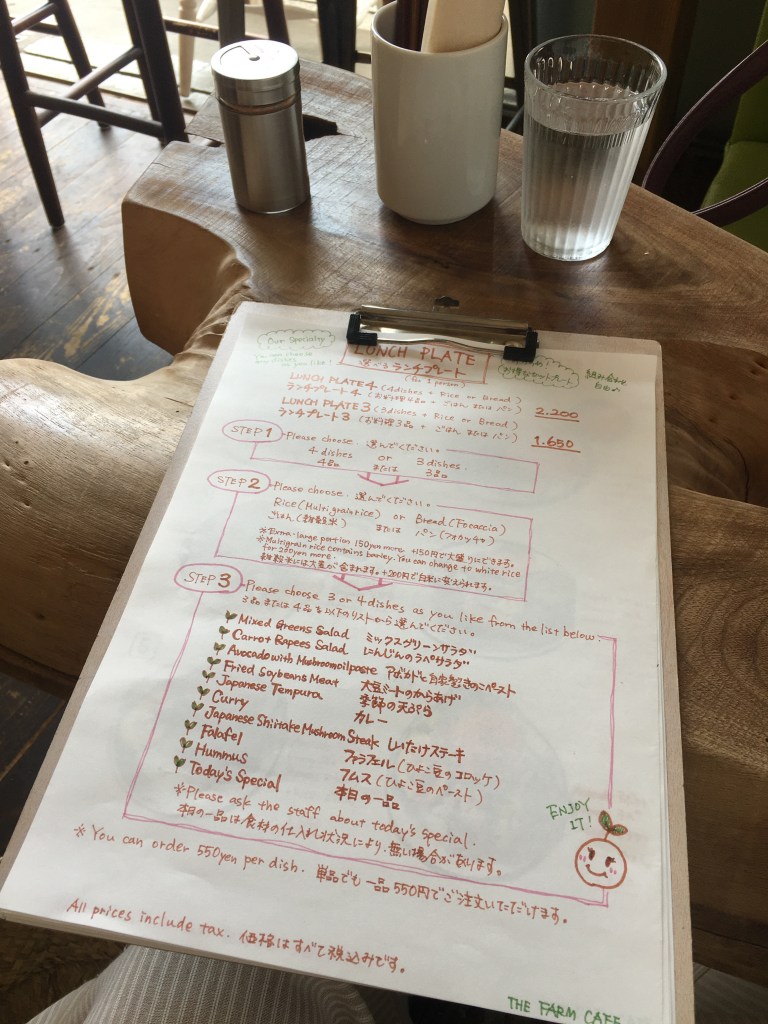 Our specialty
You can choose
any dishes
as you like!
LUNCH PLATE
選べるランチプレート
(for 1 person)
お得なセットプレート
LUNCH PLATE 4 (4dishes + Rice or Bread)
ランチプレート4 (お料理4品 + ごはん または パン)
2.200
LUNCH PLATE 3 (3dishes + Rice or Bread)
ランチプレート3 (お料理3品 + ごはん または パン)
1.650
STEP 1 Please choose. 選んでください。
4 dishes or 3 dishes.
4品 または 3品
STEP 2 Please choose. 選んでください。
Rice (Multigrain rice) or Bread (Focaccia)
ごはん (雑穀米) または パン (フォカッチャ)
※Extra-large portion 150yen more +150円で大盛りにできます。
※Multigrain rice contains barley. You can change to white rice
for 200yen more.
雑穀米には大麦が含まれます。+200円で白米に変えられます。
STEP 3 Please choose 3 or 4 dishes as you like from the list below:
3品 または 4品を以下のリストから選んでください。
Mixed Greens Salad ミックスグリーンサラダ
Carrot Rapees Salad にんじんのラペサラダ
Avocado with Mushroom oil paste アボカドと自家製きのこペースト
Fried Soybeans Meat 大豆ミートのからあげ
Japanese Tempura 季節の天ぷら
Curry カレー
Japanese Shiitake Mushroom Steak しいたけステーキ
Falafel ファラフェル (ひよこ豆のコロッケ)
Hummus フムス (ひよこ豆のペースト)
Today's Special 本日の一品
※Please ask the staff about today's special.
本日の一品は食材の仕入れ状況により、無い場合があります。
ENJOY
IT!
※ You can order 550yen per dish. 単品でも一品550円でご注文いただけます。
All prices include tax. 価格はすべて税込みです。
THE FARM CAFE